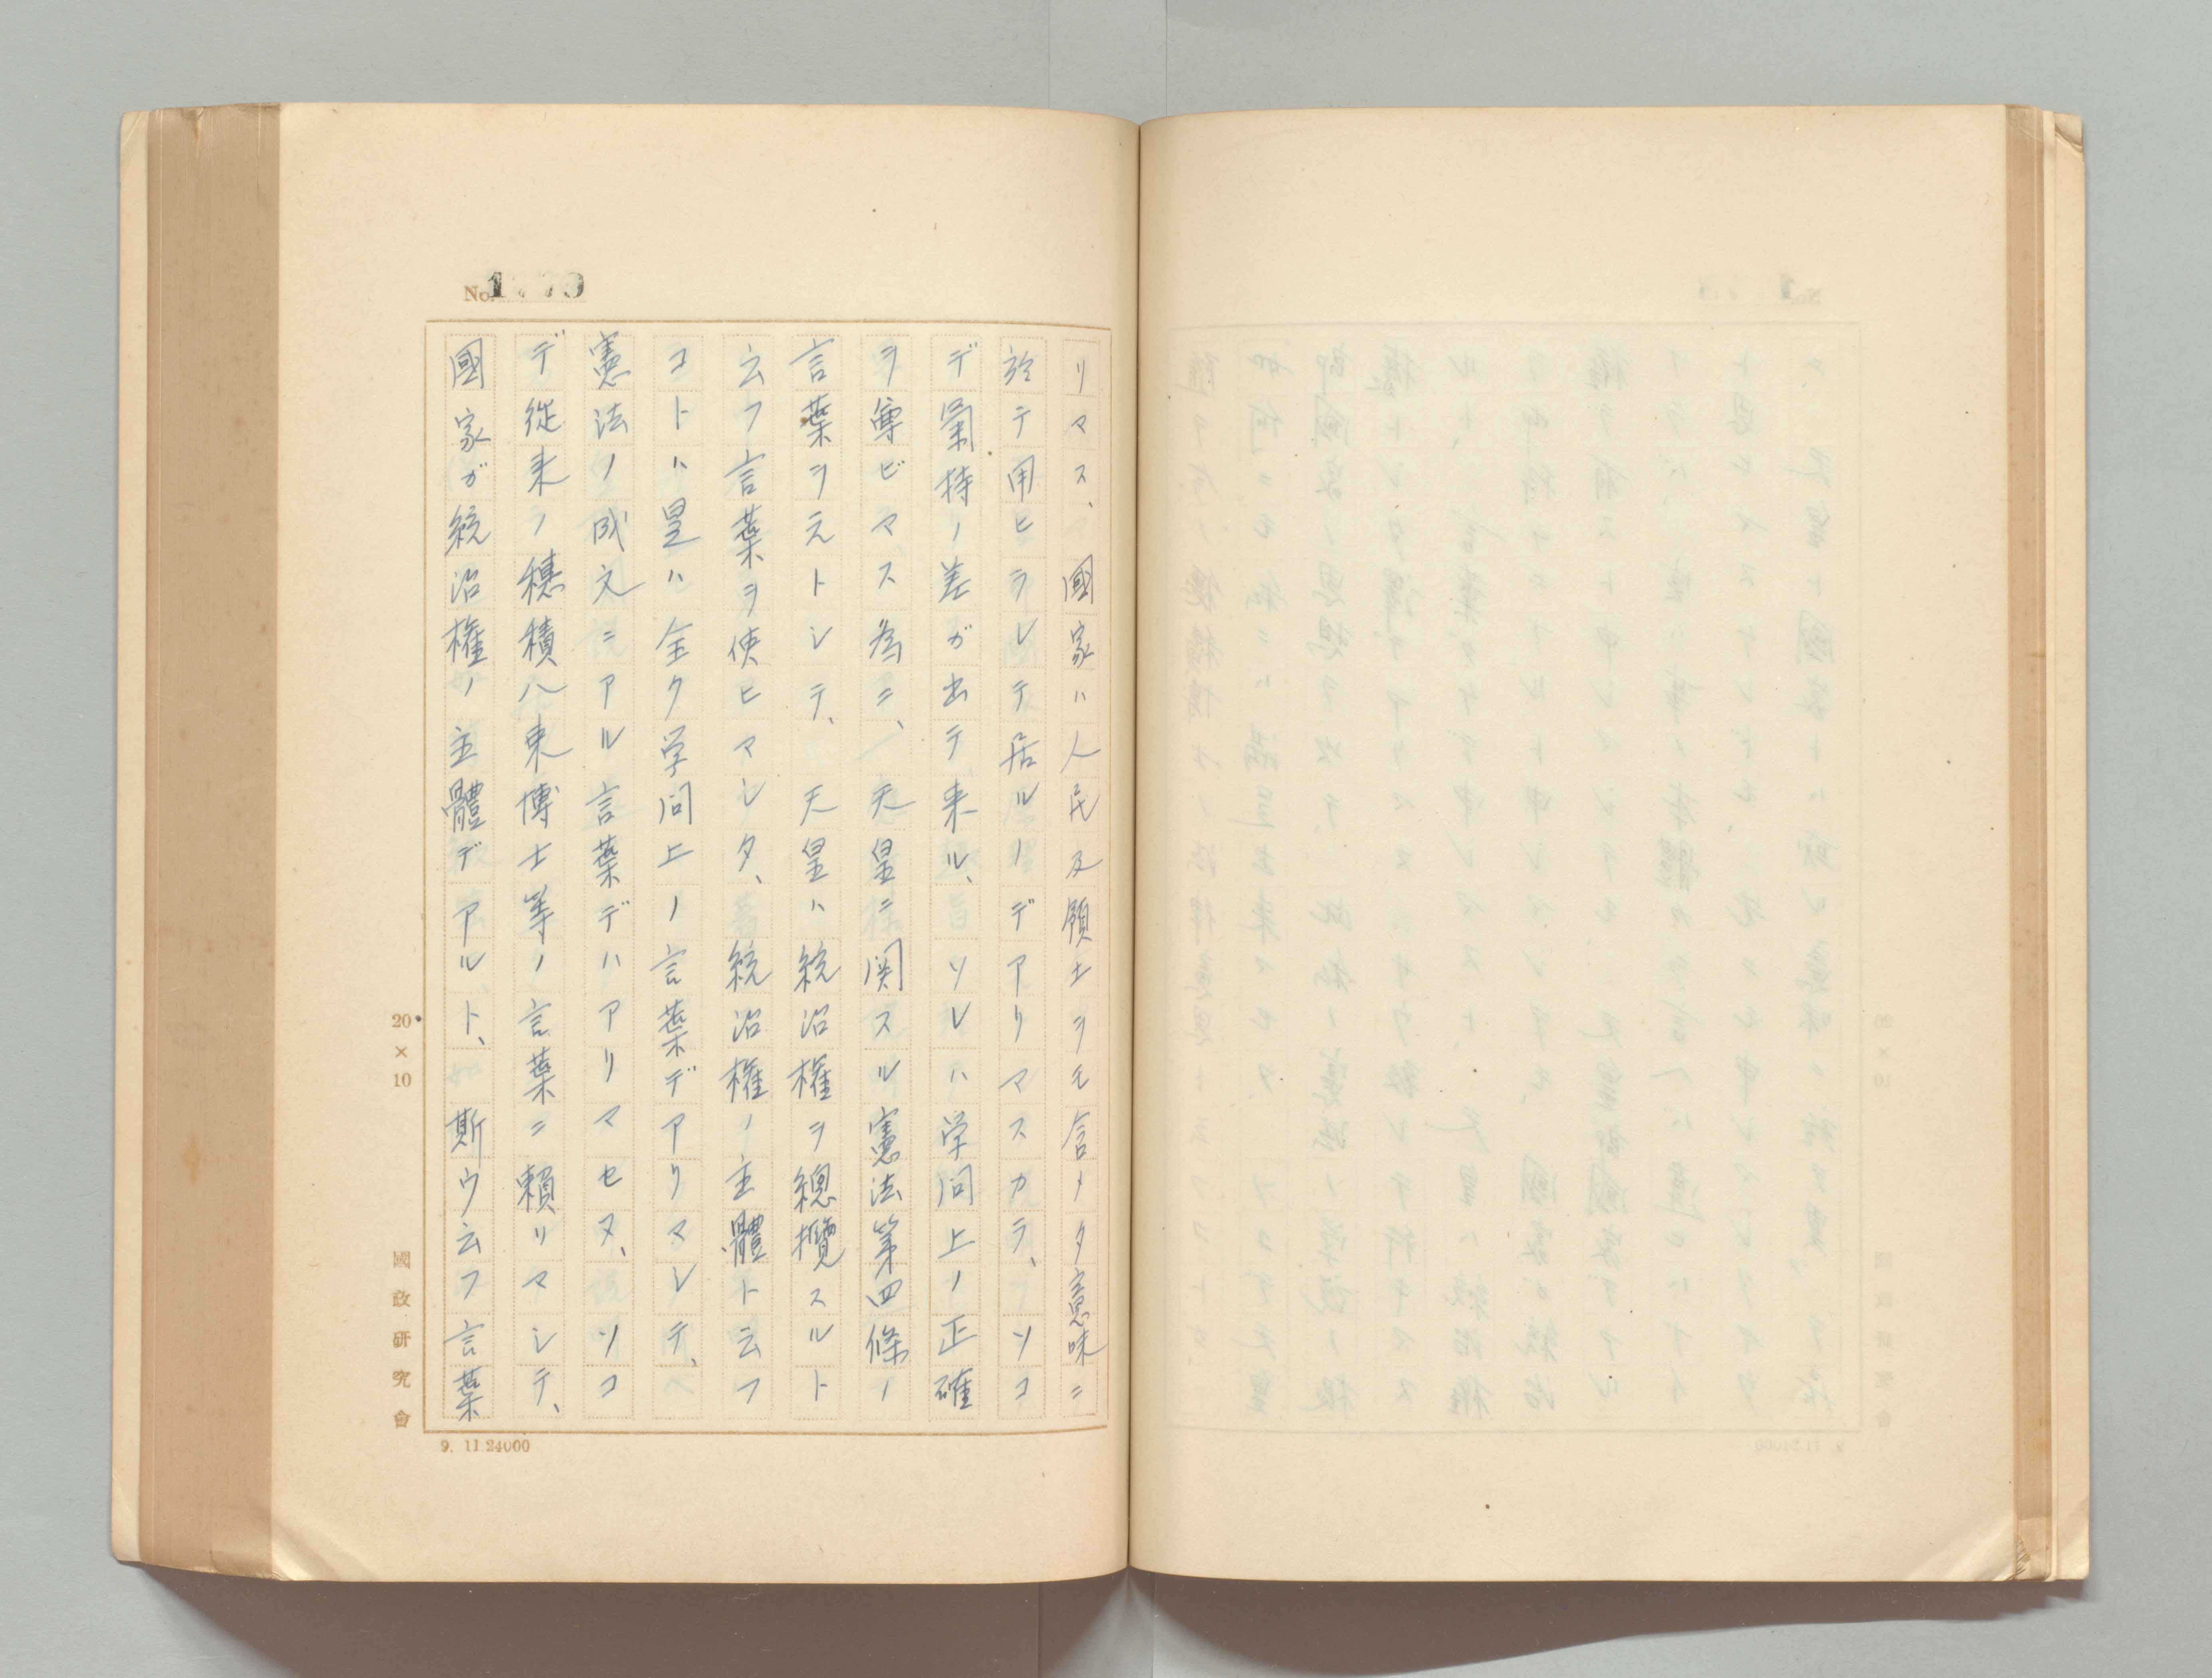 No. 1779
リマス、國家ハ人民及領土ヲモ含メタ意味ニ
於テ用ヒラレテ居ルノデアリマスカラ、ソコ
デ氣持ノ差ガ出テ来ル、ソレハ学問上ノ正確
ヲ尊ビマス為ニ、天皇ニ関スル憲法第四條ノ
言葉ヲ元トシテ、天皇ハ統治權ヲ總攬スルト
云フ言葉ヲ使ヒマシタ、統治權ノ主體ト云フ
コトハ是ハ全ク学問上ノ言葉デアリマシテ、
憲法ノ成文ニアル言葉デハアリマセヌ、ソコ
デ從来ノ穗積八束博士等ノ言葉ニ頼リマシテ、
國家ガ統治權ノ主體デアルト、斯ウ云フ言葉
20×10
國政研究會
9. 11.24000